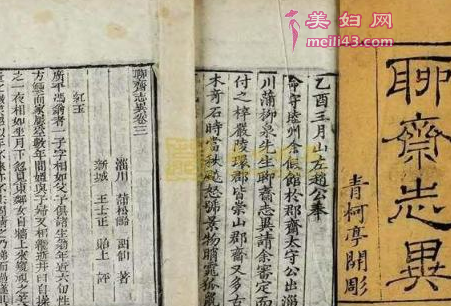 美妇网
meili43.com
聊齋志異
青柯亭開彫
乙酉三月山左趙公奉
命守睦州余假館於郡齋太守公出淄
川蒲柳泉先生聊齋志異請余審定而
付之梓嚴陵環郡皆崇山郡齋又多古
木奇石時當秋飈怒號景物睄窱狐
聊齋志異卷三
淄川 蒲松齡 留仙 著
新城 王士正 貽上 評
紅玉
廣平馮翁者一子字相如父子俱諸生翁年近六旬性
方鯁而家屢空數年間媼與子婦又相繼逝井臼自操
之一夜相如坐月下忽見東鄰女自墻上來窺視之美